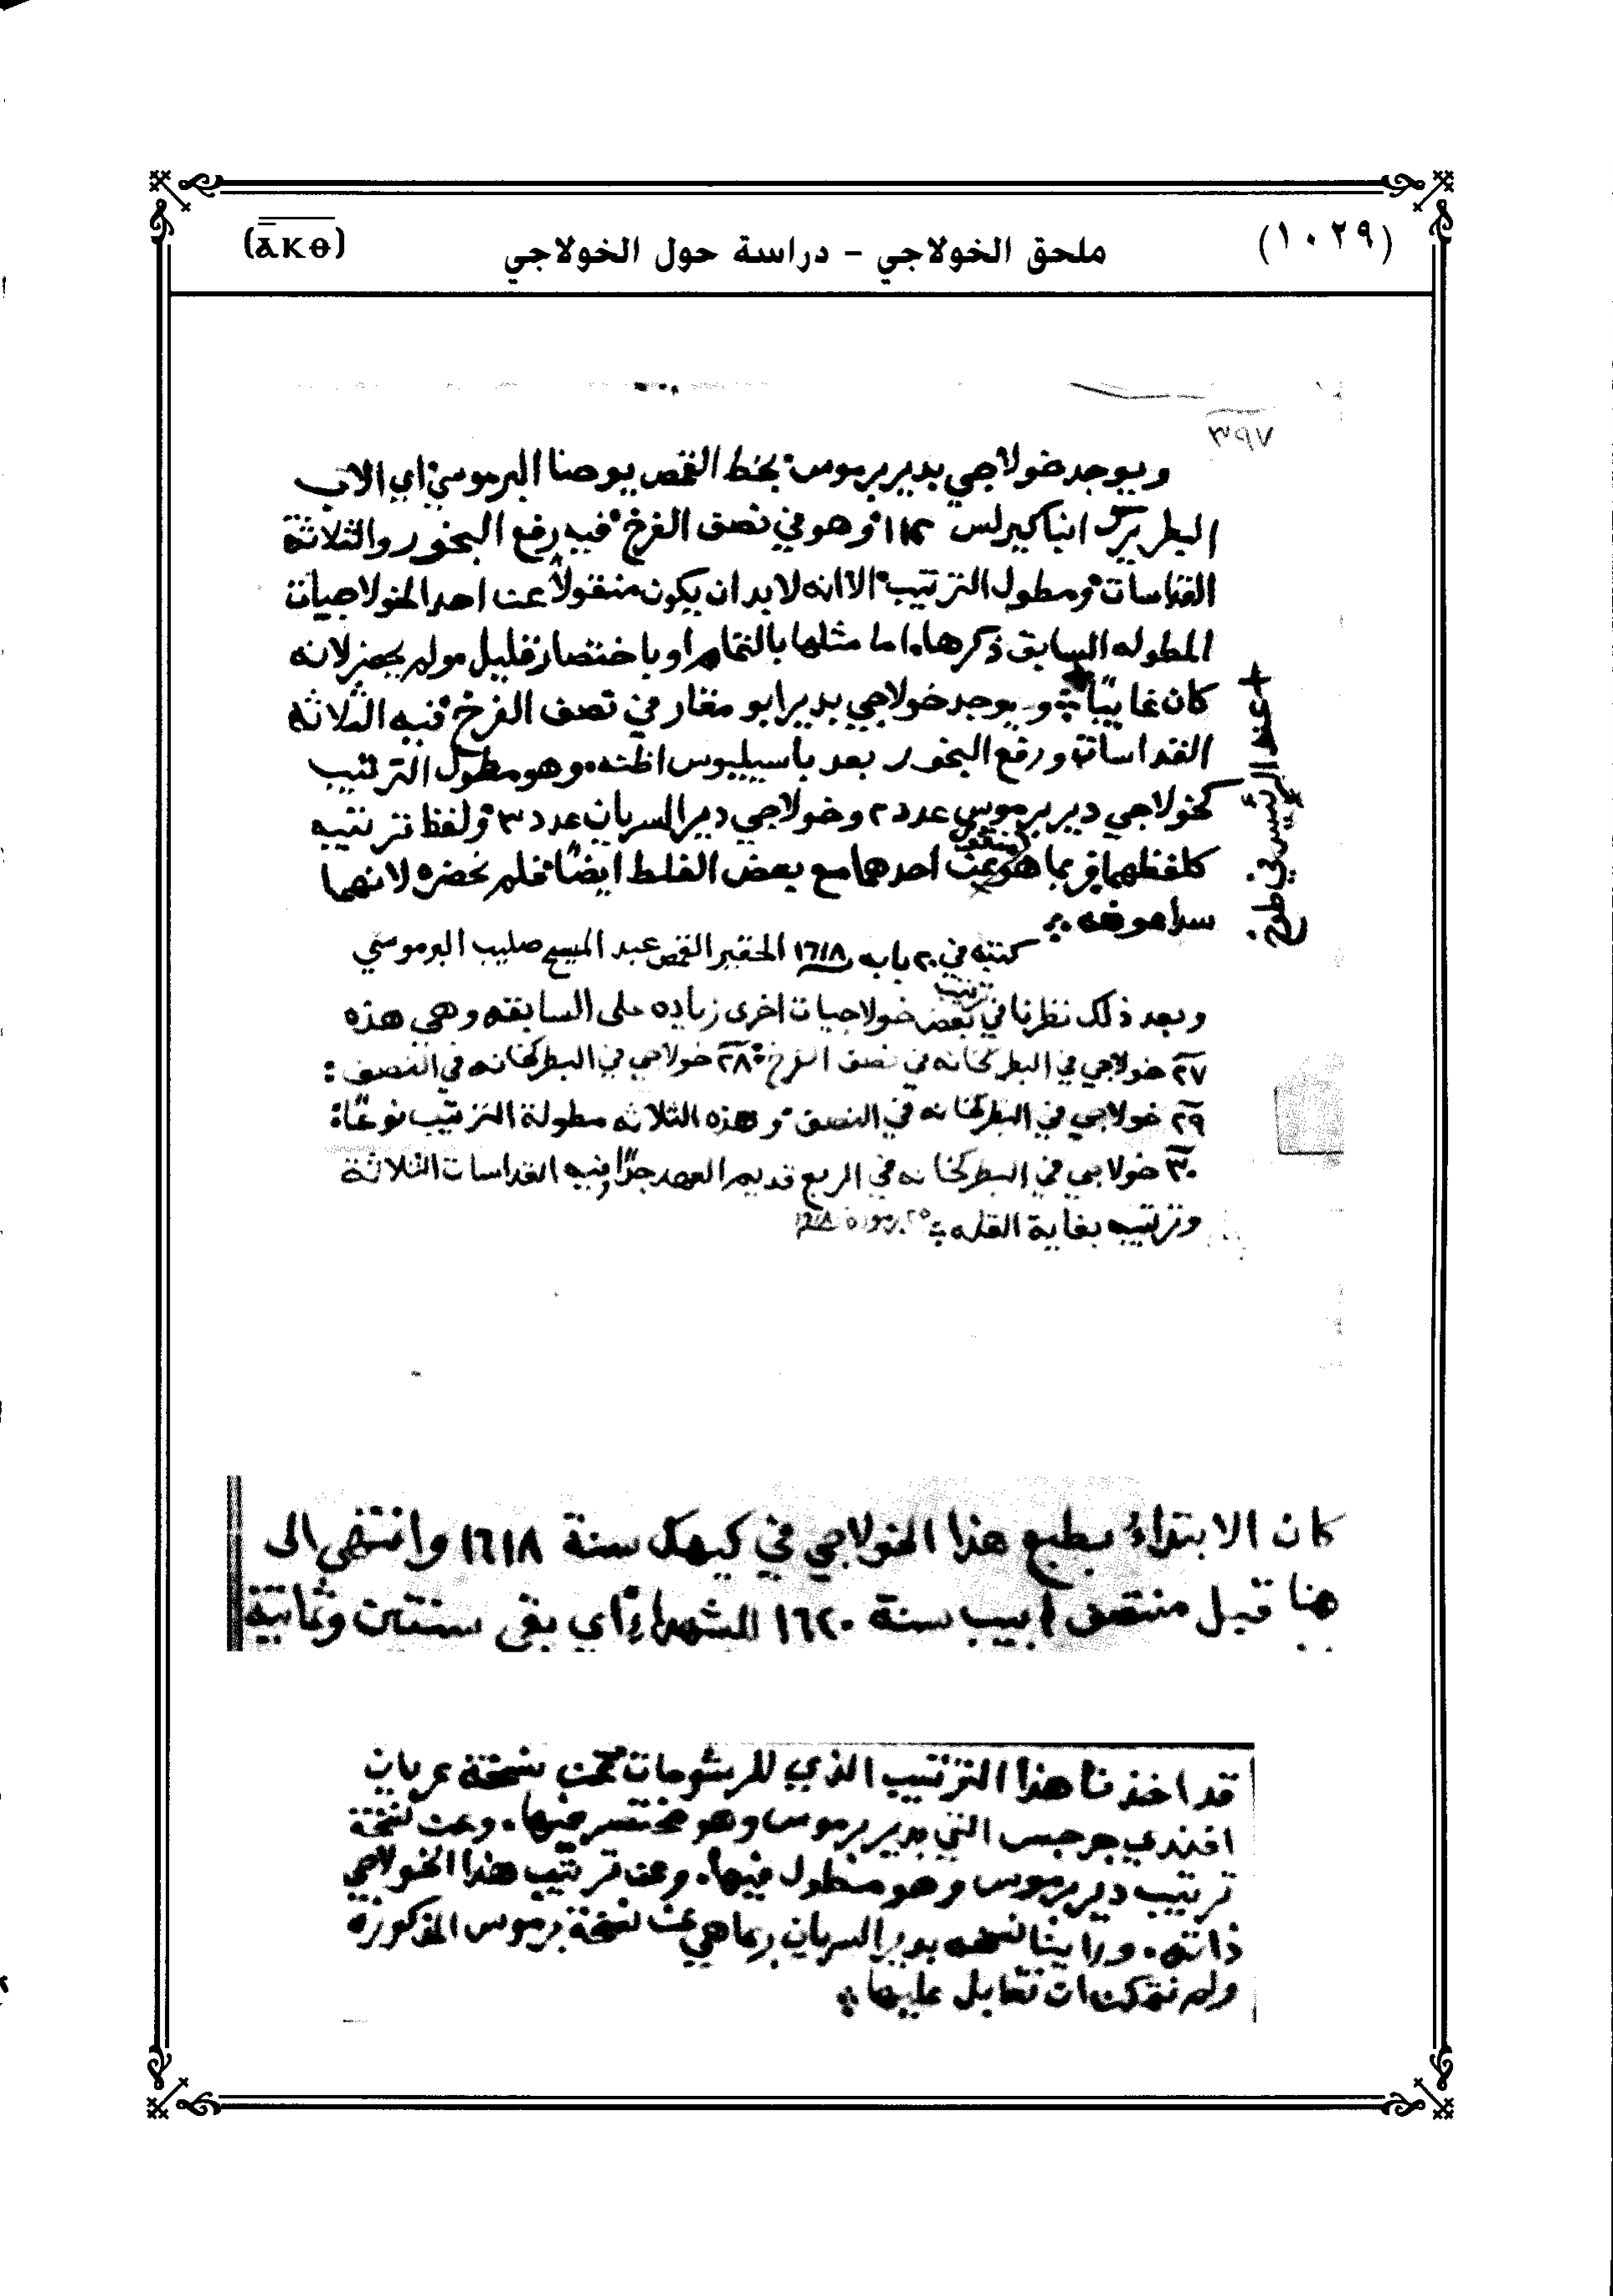 (١٠٢٩)
ملحق الخولاجي - دراسة حول الخولاجي
(ⲁ̅ⲕⲑ)
٣٩٧
ويوجد خولاجي بدير برموس بخط القمص يوحنا البرموسي اي الاب
البطريرك انبا كيرلس وهو في نصف الفرخ فيه رفع البخور والثلاثة
القداسات ومطول الترتيب الا انه لا بد ان يكون منقولاً عن احد الخولاجيات
المطوله السابق ذكرها. اما مثلها بالتمام او باختصار قليل ولم يحضر لانه
كان غايبًا ويوجد خولاجي بدير ابو مقار في نصف الفرخ فيه الثلاثة
القداسات ورفع البخور بعد باسيليوس اظنه. وهو مطول الترتيب
كخولاجي دير برموس عدد ٢ وخولاجي دير السريان عدد ٣ ولفظ ترتيبه
كلفظهما فربما هو منقول عن احدهما مع بعض الغلط ايضًا فلم نحضره لانهما
سدا عوضه
+ عند الرئيس في طوخ.
كتبته في ٢٠ بابه ١٦١٨ الحقير القمص عبد المسيح صليب البرموسي
وبعد ذلك نظرنا في ترتيب بعض خولاجيات اخرى زياده على السابقه وهي هذه
٢٧ خولاجي في البطركخانه في نصف الفرخ ٢٨ خولاجي في البطركخانه في النصف :
٢٩ خولاجي في البطركخانه في النصف وهذه الثلاثه مطولة الترتيب نوعًا :
٣٠ خولاجي في البطركخانه في الربع قديم العهد جدًا وفيه القداسات الثلاثة
وترتيبه بغاية القله
كان الابتداء بطبع هذا الخولاجي في كيهك سنة ١٦١٨ وانتهى الى
هنا قبل منتصف ابيب سنة ١٦٢٠ للشهداء اي بقى سنتين وثمانية
قد اخذنا هذا الترتيب الذي للرشومات عن نسخة عريان
افندي جرجس التي بدير برموس وهو مختصر فيها. وعن نسخة
ترتيب دير برموس وهو مطول فيها. وعن ترتيب هذا الخولاجي
ذاته. وراينا نسخه بدير السريان ربما هي عن نسخة برموس المذكورة
ولم نتمكن ان نقابل عليها